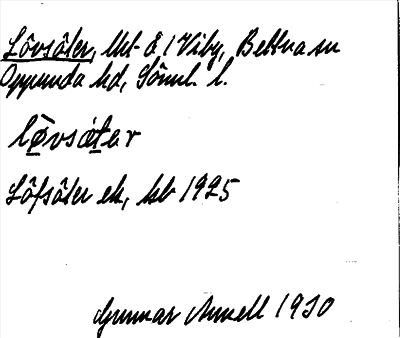 Lövsäter, lht å Viby, Bettna sn
Oppunda hd, Söml. l.
lø̀vsátar
Löfsäter ek, kb 1925
Gunnar Annell 1930